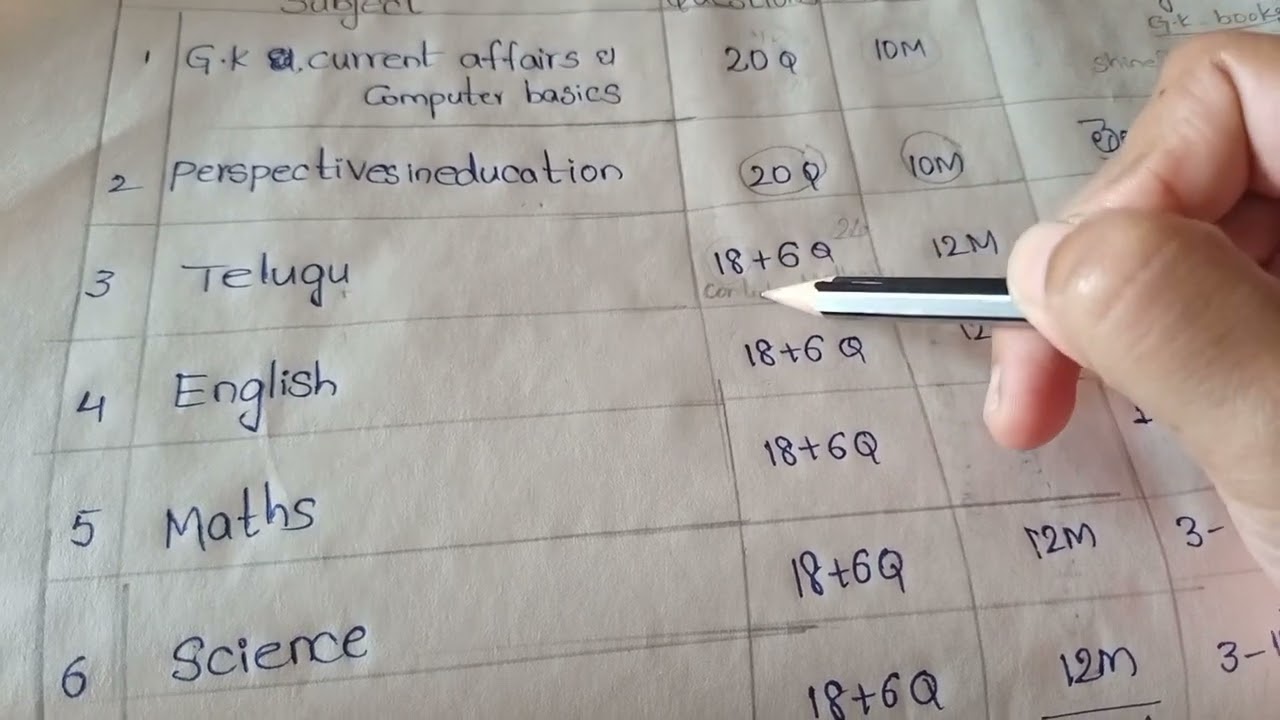 Subject Questions
G.K books
1 G.K & current affairs & 20 Q 10M
Computer basics
2 perspectives in education 20 Q 10M
3 Telugu 18+6 Q 12M
4 English 18+6 Q 12
5 Maths 18+6Q
18+6Q 12M 3-
6 Science 18+6Q 12M 3-